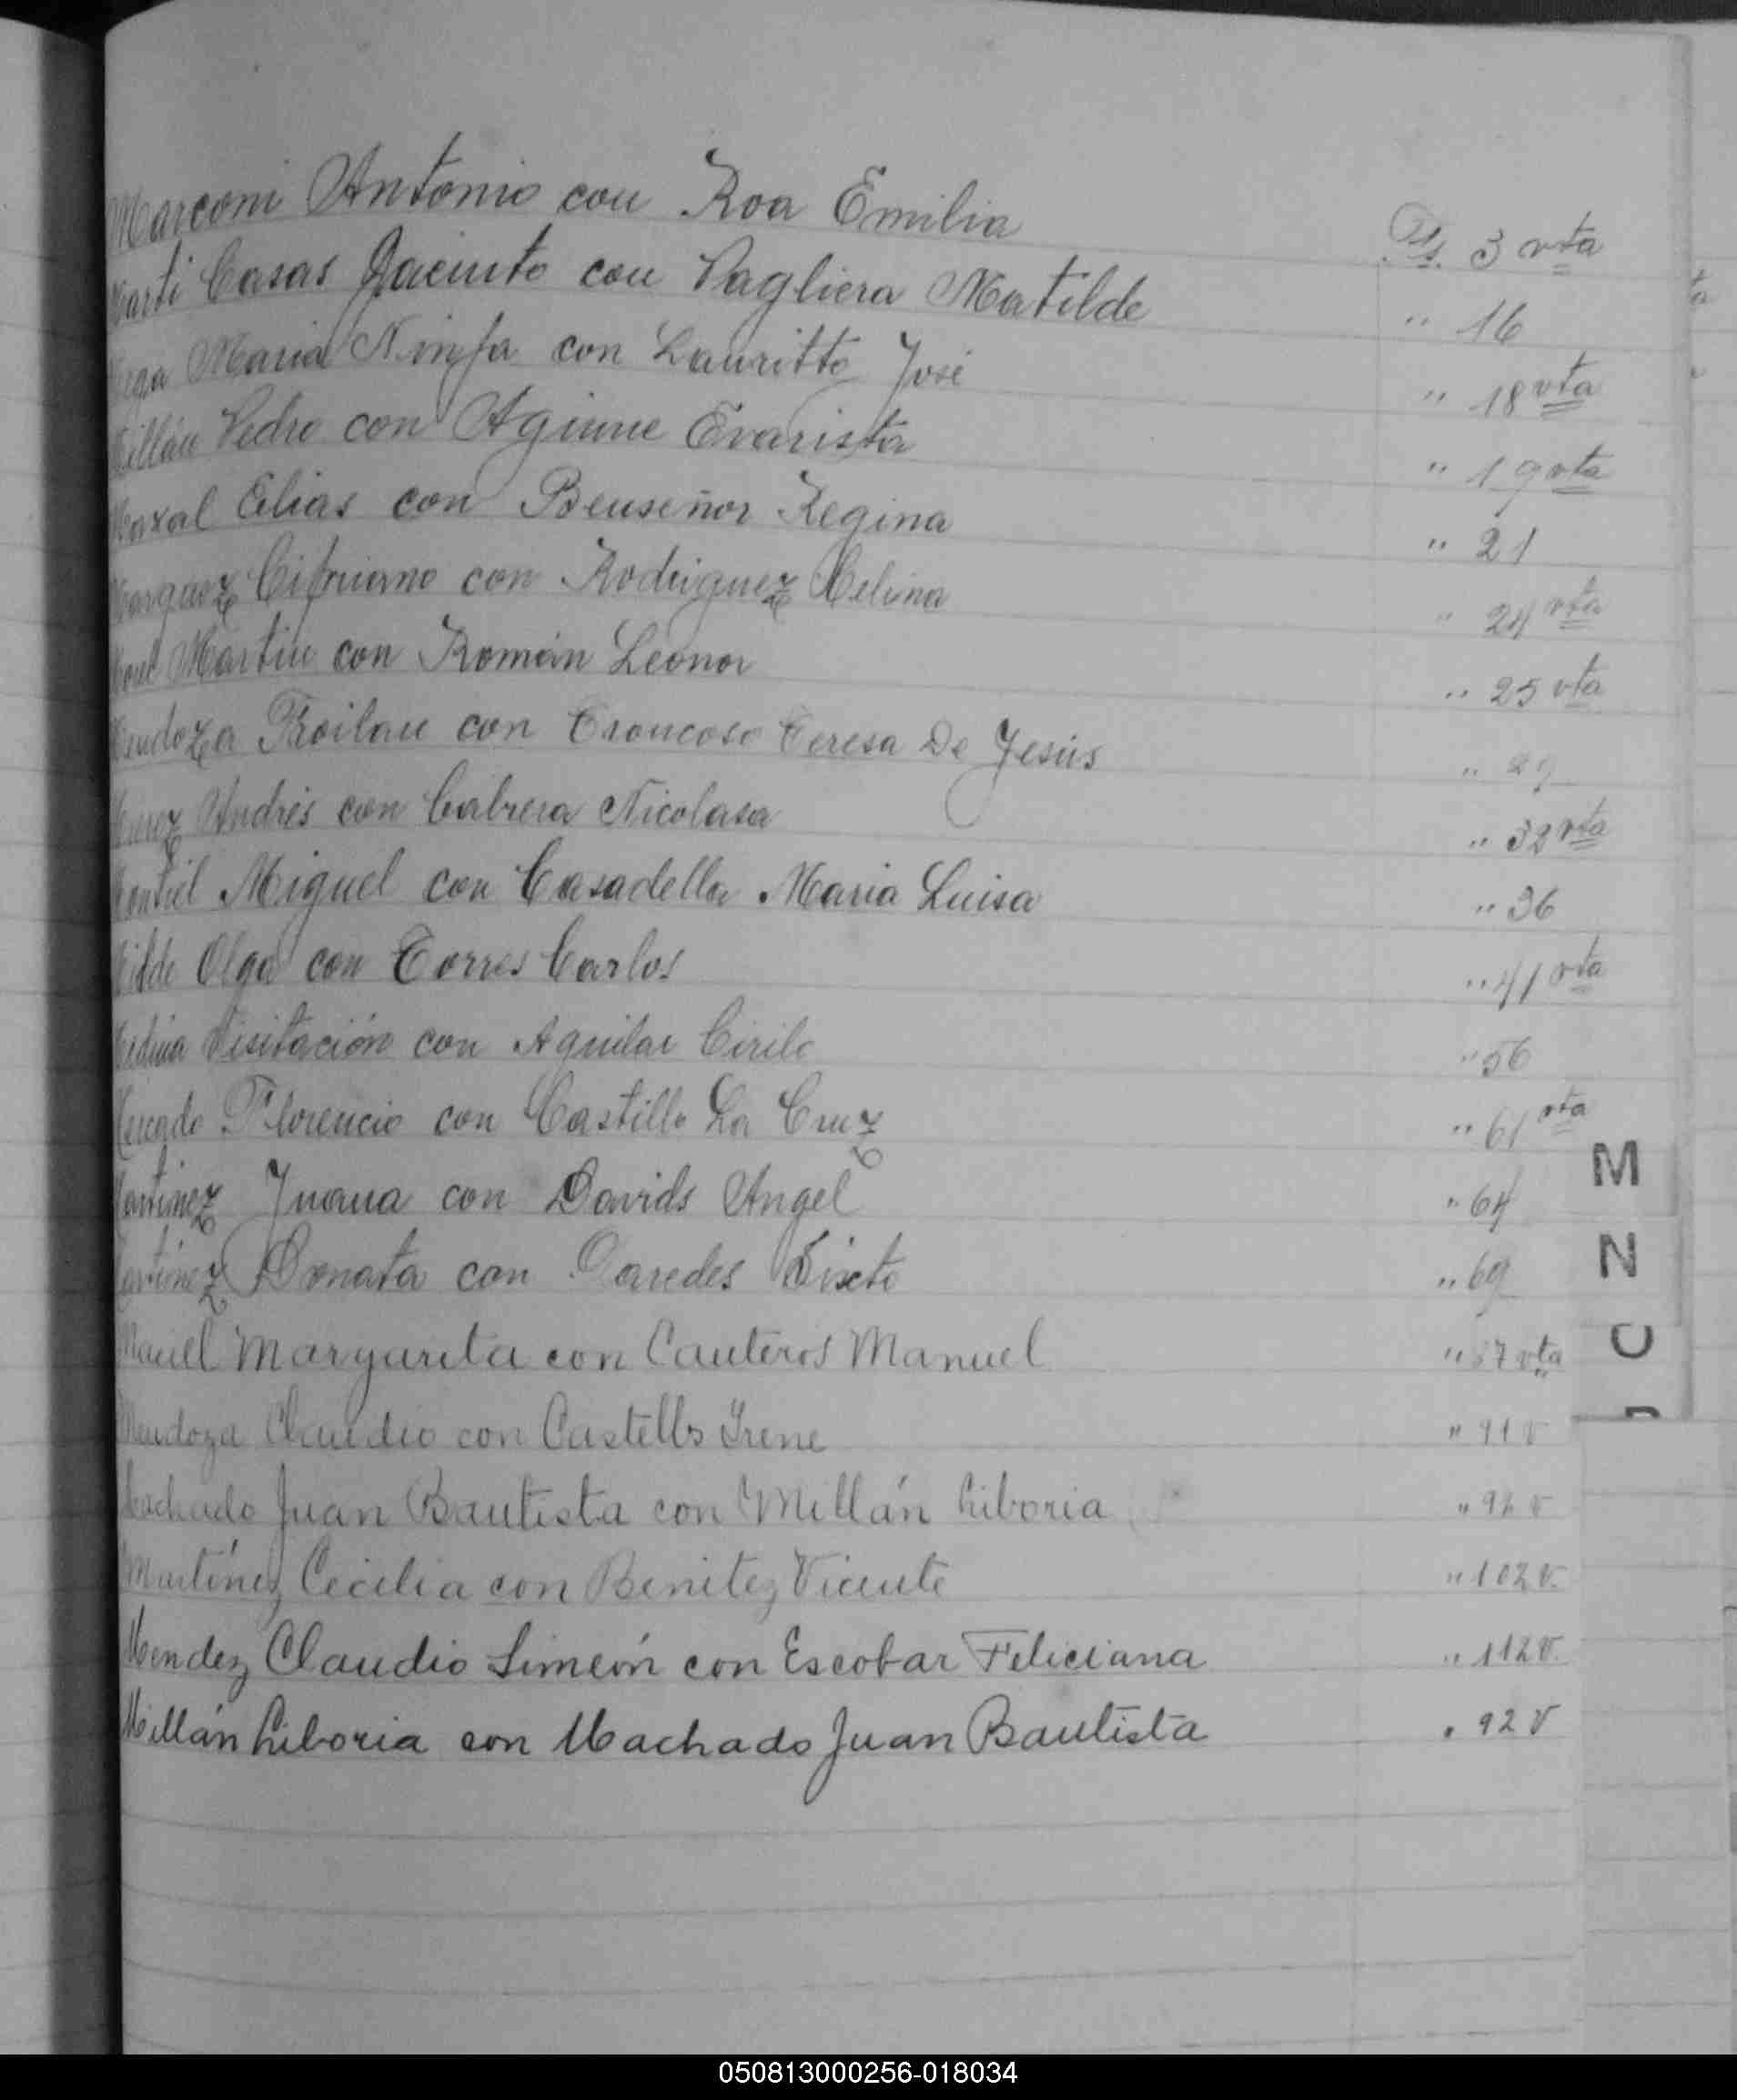 Marconi Antonio con Roa Emilia Fs. 3 vta
Marti Casas Jacinto con Pagliera Matilde " 16
Maria Ninfa con Lauritto José " 18 vta
Millán Pedro con Aguirre Evarista " 19 vta
Elias con Benseñor Regina " 21
Marquez Cipriano con Rodriguez Celina " 24 vta
Martin con Román Leonor " 25 vta
Mendoza Froilan con Troncoso Teresa De Jesús " 29
Andrés con Cabrera Nicolasa " 32 vta
Montiel Miguel con Casadella Maria Luisa " 36
Olga con Torres Carlos " 41 vta
Medina Visitación con Aguilar Cirilo " 56
Mercado Florencio con Castillo La Cruz " 61 vta
Martinez Juana con Davids Angel " 64
Martinez Donata con Paredes Sixto " 69
Maciel Margarita con Cauteros Manuel " 87 vta
Mendoza Claudio con Castells Irene " 91 v
Machado Juan Bautista con Millán Liboria " 92 v
Martínez Cecilia con Benitez Vicente " 102 v.
Mendez Claudio Simeón con Escobar Feliciana " 112 v.
Millán Liboria con Machado Juan Bautista " 92 v
M
N
O
050813000256-018034